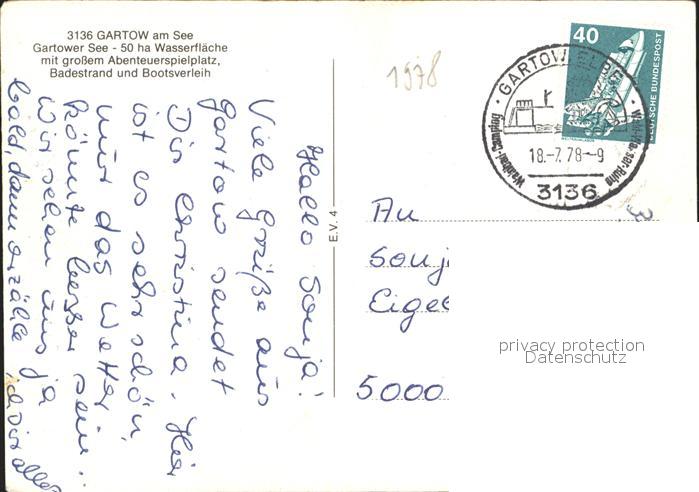 3136 GARTOW am See
Gartower See - 50 ha Wasserfläche
mit großem Abenteuerspielplatz,
Badestrand und Bootsverleih
1978
40
DEUTSCHE BUNDESPOST
GARTOW
Wald-Wasser-Ruhe
Waldbad-Camping
18.-7.78-9
3136
E.V. 4
Hallo Sonja!
Viele Grüße aus
Gartow sendet
Dir Christina. Hier
ist es sehr schön,
nur das Wetter
könnte besser sein.
Wir sehen uns ja
bald, dann erzähle ich Dir alles
An
Sonj
Eigel
5000
privacy protection
Datenschutz